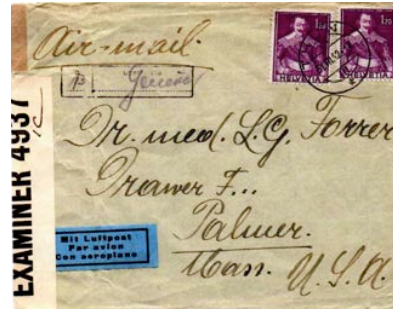 Air-mail.
1.20 1.20
HELVETIA HELVETIA
EXAMINER 4937
Dr. med. L.G. Forrer
Drawer F...
Palmer
Mass. U.S.A.
Mit Luftpost
Par avion
Con aeroplano